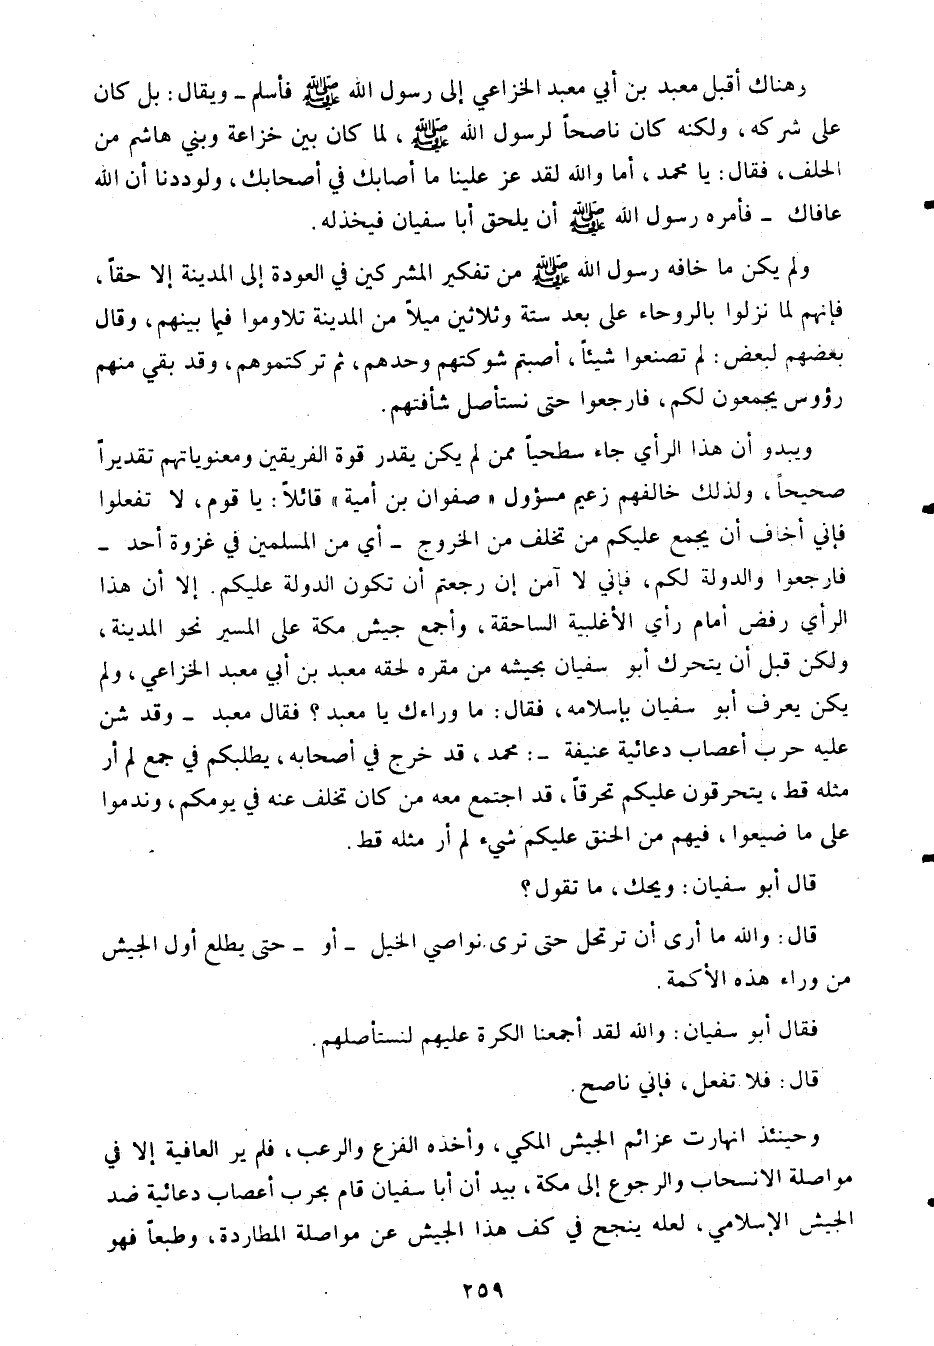 وهناك أقبل معبد بن أبي معبد الخزاعي إلى رسول الله ﷺ فأسلم ـ ويقال : بل كان
على شركه ، ولكنه كان ناصحاً لرسول الله ﷺ ، لما كان بين خزاعة وبني هاشم من
الحلف ، فقال : يا محمد ، أما والله لقد عز علينا ما أصابك في أصحابك ، ولوددنا أن الله
عافاك ـ فأمره رسول الله ﷺ أن يلحق أبا سفيان فيخذله .
ولم يكن ما خافه رسول الله ﷺ من تفكير المشركين في العودة إلى المدينة إلا حقاً ،
فإنهم لما نزلوا بالروحاء على بعد ستة وثلاثين ميلاً من المدينة تلاوموا فيما بينهم ، وقال
بعضهم لبعض : لم تصنعوا شيئاً ، أصبتم شوكتهم وحدهم ، ثم تركتموهم ، وقد بقي منهم
رؤوس يجمعون لكم ، فارجعوا حتى نستأصل شأفتهم .
ويبدو أن هذا الرأي جاء سطحياً ممن لم يكن يقدر قوة الفريقين ومعنوياتهم تقديراً
صحيحاً ، ولذلك خالفهم زعيم مسؤول « صفوان بن أمية » قائلاً : يا قوم ، لا تفعلوا
فإني أخاف أن يجمع عليكم من تخلف من الخروج ـ أي من المسلمين في غزوة أحد ـ
فارجعوا والدولة لكم ، فإني لا آمن إن رجعتم أن تكون الدولة عليكم . إلا أن هذا
الرأي رفض أمام رأي الأغلبية الساحقة ، وأجمع جيش مكة على المسير نحو المدينة ،
ولكن قبل أن يتحرك أبو سفيان بجيشه من مقره لحقه معبد بن أبي معبد الخزاعي ، ولم
يكن يعرف أبو سفيان بإسلامه ، فقال : ما وراءك يا معبد ؟ فقال معبد ـ وقد شن
عليه حرب أعصاب دعائية عنيفة ـ : محمد ، قد خرج في أصحابه ، يطلبكم في جمع لم أر
مثله قط ، يتحرقون عليكم تحرقاً ، قد اجتمع معه من كان تخلف عنه في يومكم ، وندموا
على ما ضيعوا ، فيهم من الحنق عليكم شيء لم أر مثله قط .
قال أبو سفيان : ويحك ، ما تقول ؟
قال : والله ما أرى أن ترتحل حتى ترى نواصي الخيل ـ أو ـ حتى يطلع أول الجيش
من وراء هذه الأكمة .
فقال أبو سفيان : والله لقد أجمعنا الكرة عليهم لنستأصلهم .
قال : فلا تفعل ، فإني ناصح .
وحينئذ انهارت عزائم الجيش المكي ، وأخذه الفزع والرعب ، فلم ير العافية إلا في
مواصلة الانسحاب والرجوع إلى مكة ، بيد أن أبا سفيان قام بحرب أعصاب دعائية ضد
الجيش الإسلامي ، لعله ينجح في كف هذا الجيش عن مواصلة المطاردة ، وطبعاً فهو
٢٥٩